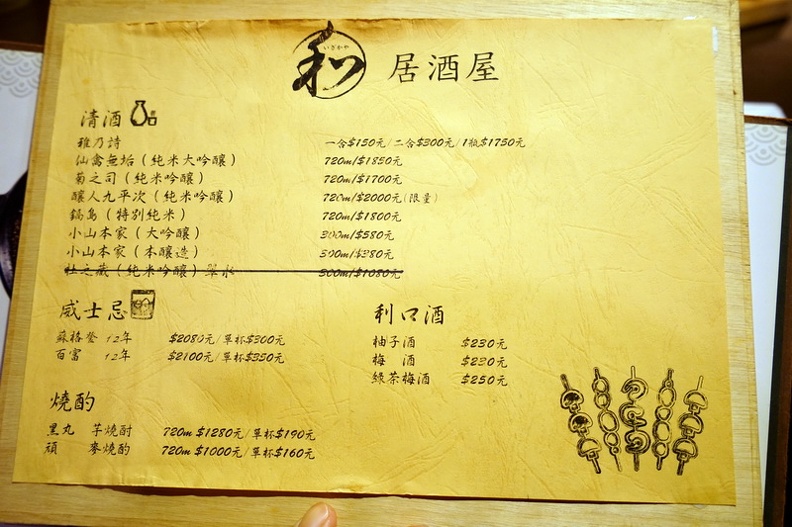 和 いざかや 居酒屋
清酒
雅乃詩 一合$150元/二合$300元/1瓶$1750元
仙禽無垢（純米大吟釀） 720ml$1850元
菊之司（純米吟釀） 720ml$1700元
釀人九平次（純米吟釀） 720ml$2000元(限量)
鍋島（特別純米） 720ml$1800元
小山本家（大吟釀） 300ml$580元
小山本家（本釀造） 300ml$380元
杜之藏（純米吟釀）翠水 500ml$1080元
威士忌
蘇格登 12年 $2080元/單杯$300元
百富 12年 $2100元/單杯$350元
利口酒
柚子酒 $230元
梅 酒 $230元
綠茶梅酒 $250元
燒酌
黑丸 芋燒酎 720ml $1280元/單杯$190元
頑 麥燒酌 720ml $1000元/單杯$160元